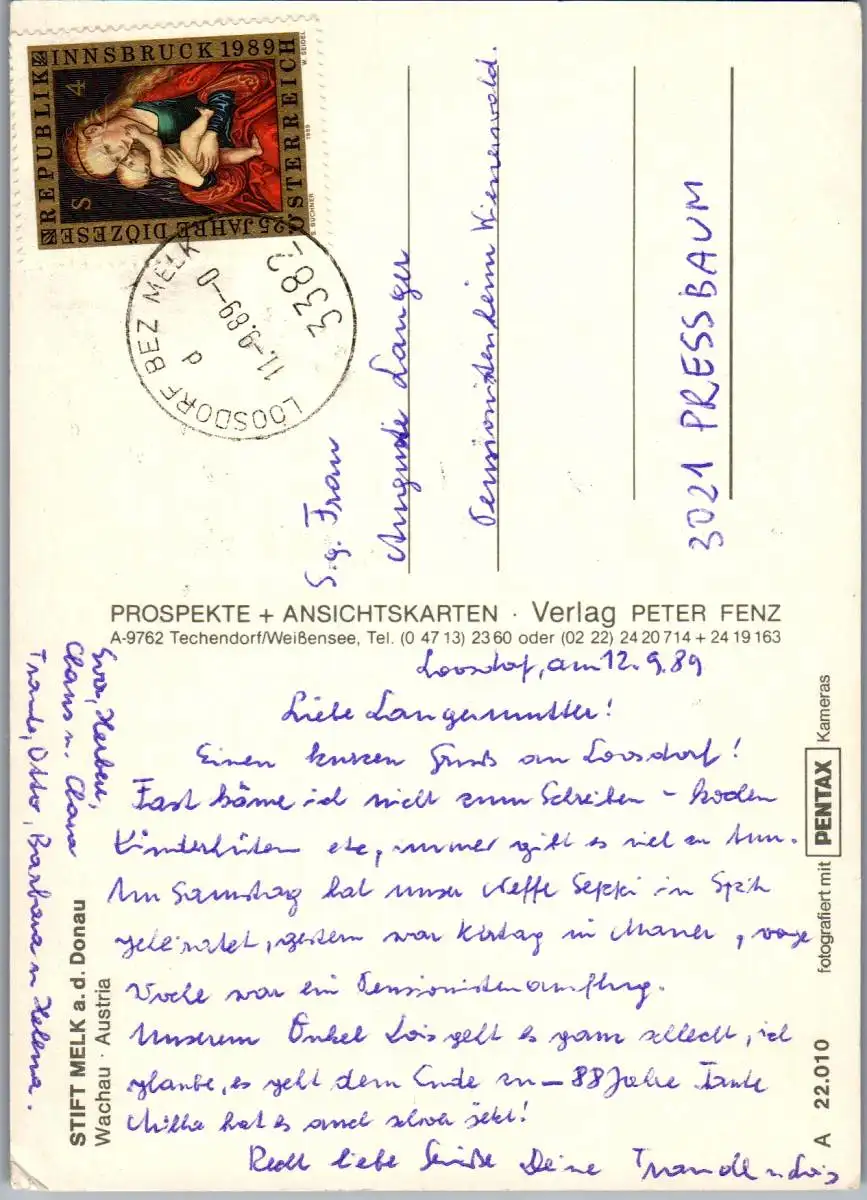 REPUBLIK ÖSTERREICH
INNSBRUCK 1989
25 JAHRE DIÖZESE
S 4
W. SEIDEL
1989
S. BUCHNER
LOOSDORF BEZ MELK
3382
11.-9.89-0
d
S.g. Frau
Auguste Langer
Pensionistenheim Wienerwald.
3021 PRESSBAUM
PROSPEKTE + ANSICHTSKARTEN · Verlag PETER FENZ
A-9762 Techendorf/Weißensee, Tel. (0 47 13) 23 60 oder (02 22) 24 20 714 + 24 19 163
Loosdorf, am 12.9.89
Liebe Langermutter!
Einen kurzen Gruß an Loosdorf!
Fast käme ich nicht zum Schreiben – kochen
Kinderhüten etc, immer gibt es viel zu tun.
Am Samstag hat unser Neffe Seppi in Spitz
geheiratet, gestern war Kirtag in Mauer, vorige
Woche war ein Pensionistenausflug.
Unserem Onkel Lois geht es ganz schlecht, ich
glaube, es geht dem Ende zu – 88 Jahre Tante
Milla hat es auch schon jetzt!
Recht liebe Grüße Deine Traudl u Lois
Eva, Herbert,
Claus u. Clara
Traude, Otto, Barbara u Helena.
STIFT MELK a. d. Donau
Wachau · Austria
A 22.010
fotografiert mit PENTAX Kameras